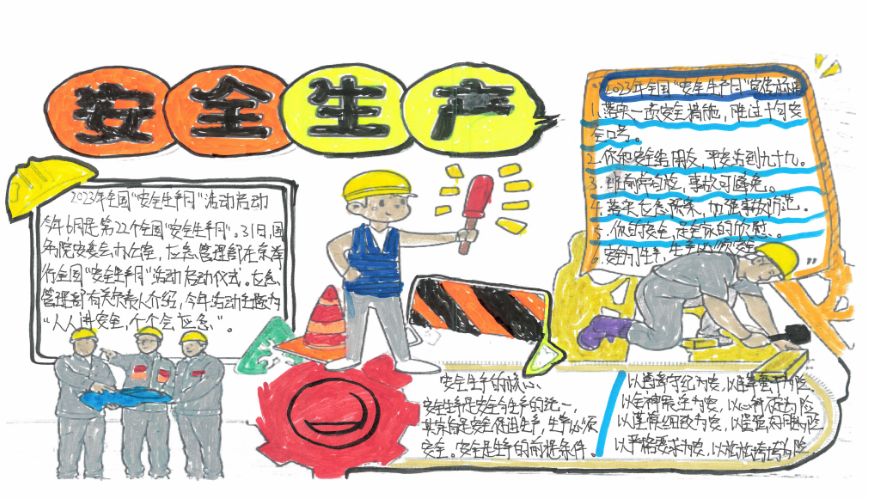 安全生产
2023年全国"安全生产月"活动启动
今年6月是第22个全国"安全生产月"。31日,国
务院安委会办公室,应急管理部在京举
行全国"安全生产月"活动启动仪式。应急
管理部有关负责人介绍,今年活动主题为
"人人讲安全,个个会应急"。
2023年全国"安全生产月"宣传标语
1.落实一项安全措施,胜过十句安
全口号。
2.你把安全当朋友,平安活到九十九。
3.班前常检,事故可避免。
4.落实应急预案,加强事故防范。
5.你的安全,是全家的欣慰。
安全为生产,生产必须安全。
安全生产的核心、
安全生产是安全与生产的统一,
其宗旨是安全促进生产,生产必须
安全。安全是生产的前提条件。
以遵章守纪为安,以违章蛮干为险
以严格要求为安,以